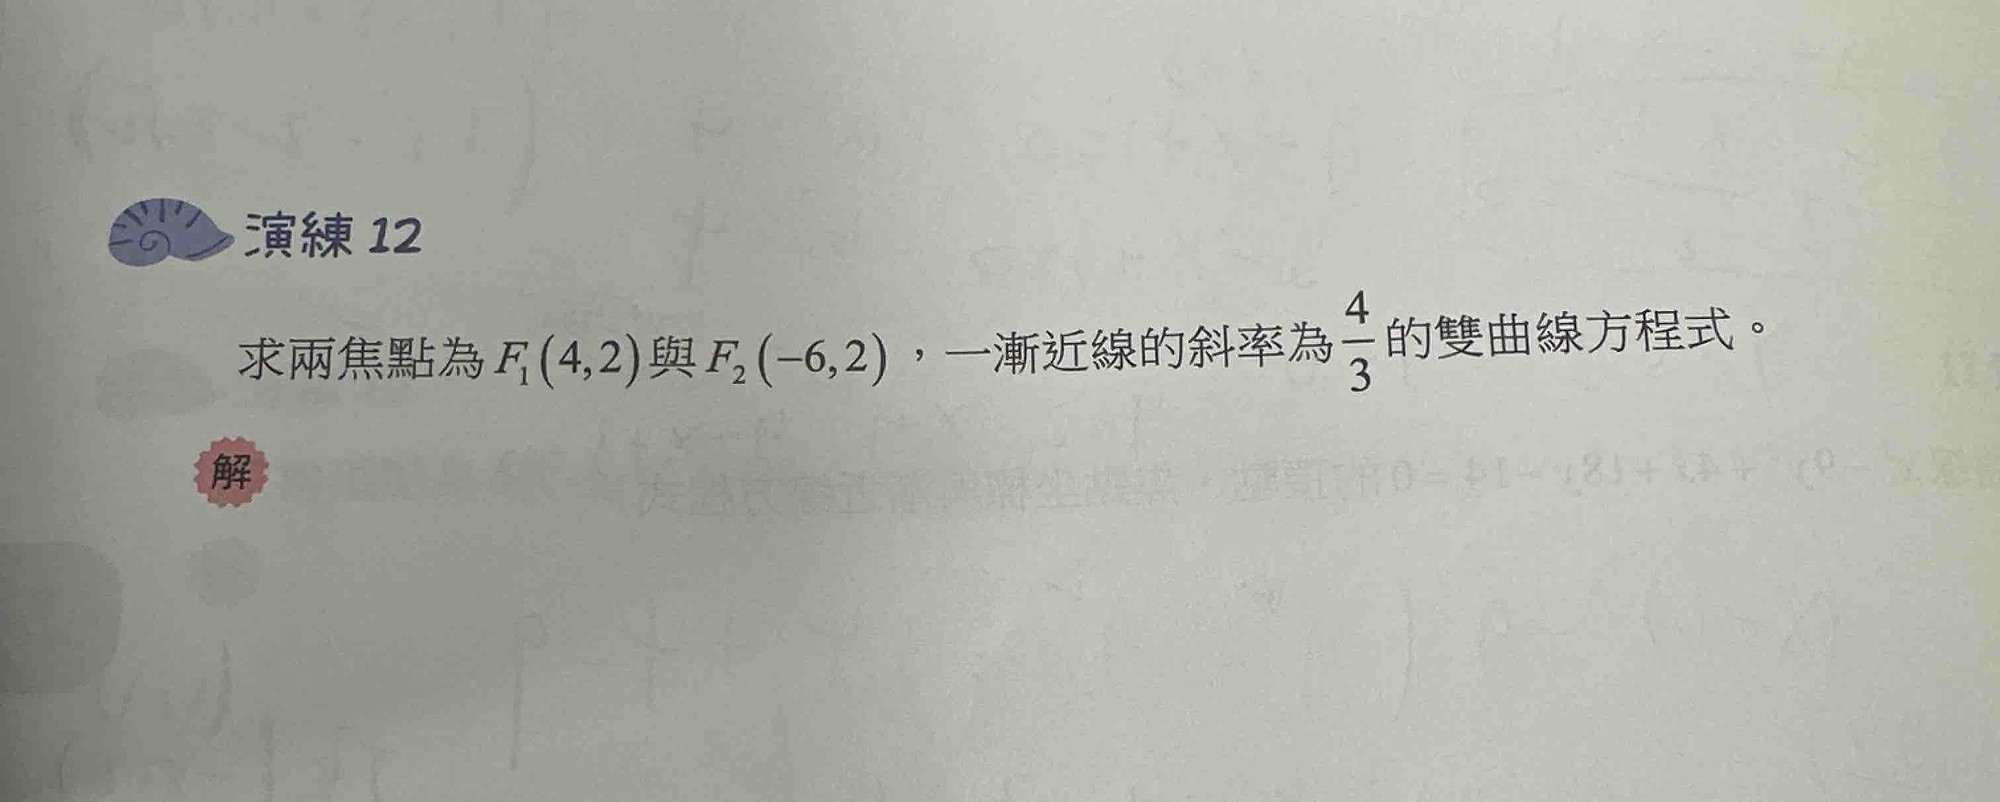 演練 12
求兩焦點為 F₁(4,2) 與 F₂(−6,2)，一漸近線的斜率為 4/3 的雙曲線方程式。
解